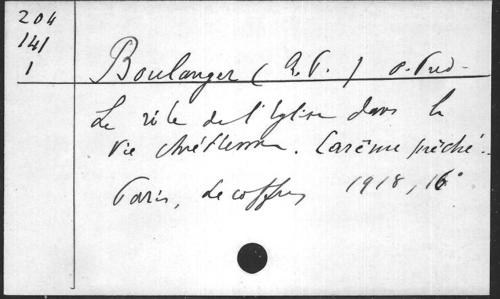 204
141
1
Boulanger (A. P.) o. Pred-
Le rôle de l'Eglise dans la
vie chrétienne. Carême prêché.
Paris, Lecoffre, 1918, 16°